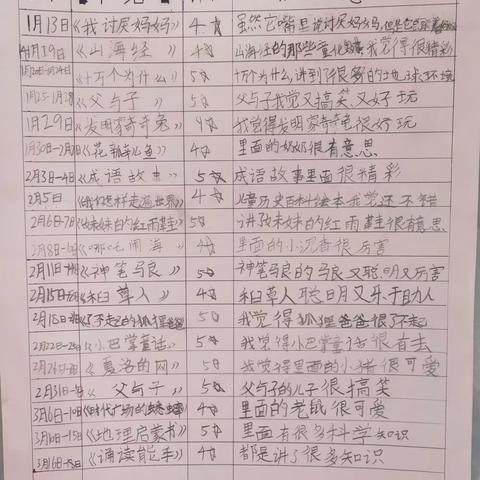 1月13日《我讨厌妈妈》 4☆ 虽然它嘴里说讨厌妈妈,但是它
1月19日《山海经》 4☆ 山海经的那些 我觉得很精彩
《十万个为什么》 5☆ 十万个为什么,讲到了很多的地球环境
1月25-1月28《父与子》 5☆ 父与子我觉又搞笑又好玩
1月29日《发明家奇奇兔》 4☆ 我觉得发明家奇奇兔很好玩
1月30-2月2《花瓢儿鱼》 4☆ 里面的奶奶很有意思
2月3日-4日《成语故事》 5☆ 成语故事里面很精彩
2月5日 怎样走遍世界》 4☆ 儿童历史百科绘本我觉还不错
2月6日-7日《妹妹的红雨鞋》 5☆ 讲了妹妹的红雨鞋很有意思
2月8日 《哪吒闹海》 4☆ 里面的小 很厉害
2月11日 《神笔马良》 5☆ 神笔马良的马良又聪明又厉害
2月15日 《稻草人》 4☆ 稻草人聪明又乐于助人
2月18日 《了不起的狐狸爸爸》 5☆ 我觉得狐狸爸爸很了不起
2月22日-25日《小巴掌童话》 5☆ 我觉得小巴掌童话很有趣
2月26日 《夏洛的网》 5☆ 我觉得里面的小猪很可爱
2月31日 《父与子》 5☆ 父与子的儿子很搞笑
3月6日-10日《时代广场的蟋蟀》 4☆ 里面的老鼠很可爱
3月10日-15日《地理启蒙书》 5☆ 里面有很多科学知识
3月16日 《诵读能手》 4☆ 都是讲了很多知识